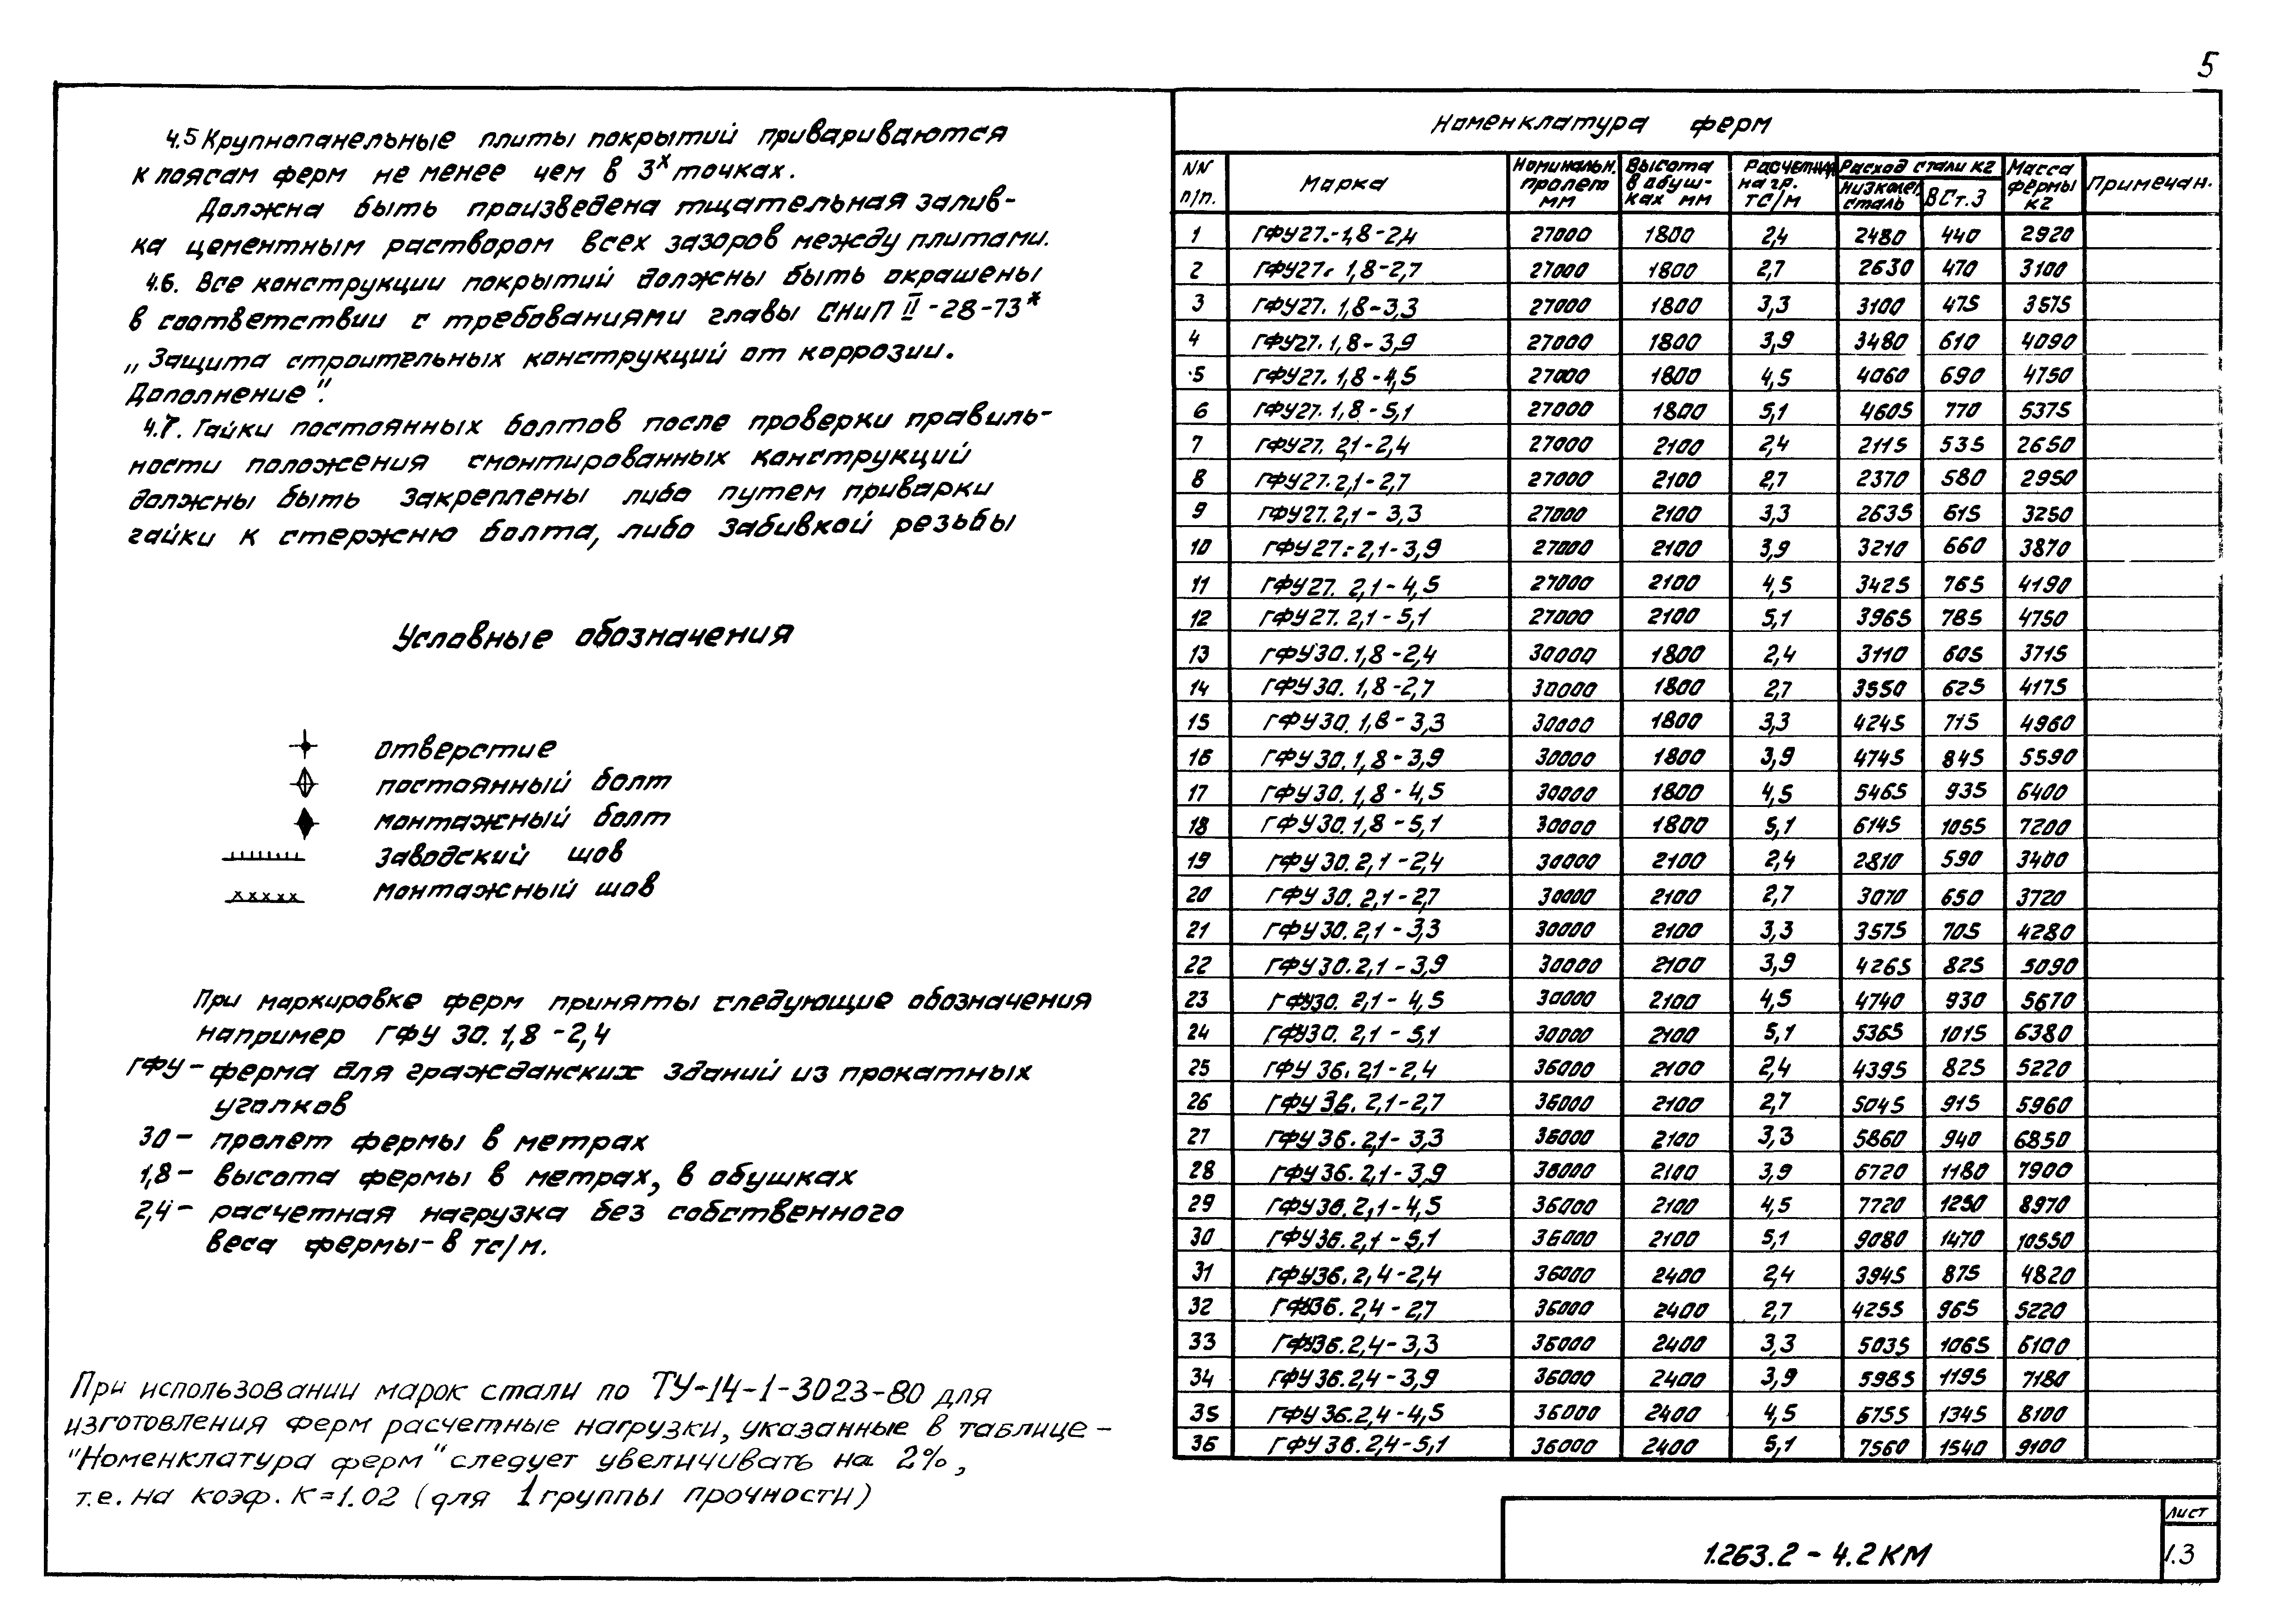 5
4.5 Крупнопанельные плиты покрытий привариваются
к поясам ферм не менее чем в 3х точках.
Должна быть произведена тщательная залив-
ка цементным раствором всех зазоров между плитами.
4.6. Все конструкции покрытий должны быть окрашены
в соответствии с требованиями главы СНиП II-28-73*
„Защита строительных конструкций от коррозии.
Дополнение".
4.7. Гайки постоянных болтов после проверки правиль-
ности положения смонтированных конструкций
должны быть закреплены либо путем приварки
гайки к стержню болта, либо забивкой резьбы
Условные обозначения
отверстие
постоянный болт
монтажный болт
заводский шов
монтажный шов
При маркировке ферм приняты следующие обозначения
например ГФУ 30. 1,8 -2,4
ГФУ - ферма для гражданских зданий из прокатных
уголков
30 - пролет фермы в метрах
1,8 - высота фермы в метрах, в обушках
2,4 - расчетная нагрузка без собственного
веса фермы - в тс/м.
При использовании марок стали по ТУ-14-1-3023-80 для
изготовления ферм расчетные нагрузки, указанные в таблице -
"Номенклатура ферм" следует увеличивать на 2%,
т.е. на коэф. К=1.02 (для 1 группы прочности)
Номенклатура ферм
NN п/п. Марка Номинальн. пролет мм Высота в обуш- ках мм Расчетная нагр. тс/м Расход стали кг Низколег. сталь ВСт.3 Масса фермы кг Примечан.
1 ГФУ27.-1,8-2,4 27000 1800 2,4 2480 440 2920
2 ГФУ27. 1,8-2,7 27000 1800 2,7 2630 470 3100
3 ГФУ27. 1,8-3,3 27000 1800 3,3 3100 475 3575
4 ГФУ27. 1,8-3,9 27000 1800 3,9 3480 610 4090
5 ГФУ27. 1,8-4,5 27000 1800 4,5 4060 690 4750
6 ГФУ27. 1,8-5,1 27000 1800 5,1 4605 770 5375
7 ГФУ27. 2,1-2,4 27000 2100 2,4 2115 535 2650
8 ГФУ27. 2,1-2,7 27000 2100 2,7 2370 580 2950
9 ГФУ27. 2,1-3,3 27000 2100 3,3 2635 615 3250
10 ГФУ27. 2,1-3,9 27000 2100 3,9 3210 660 3870
11 ГФУ27. 2,1-4,5 27000 2100 4,5 3425 765 4190
12 ГФУ27. 2,1-5,1 27000 2100 5,1 3965 785 4750
13 ГФУ30. 1,8-2,4 30000 1800 2,4 3110 605 3715
14 ГФУ30. 1,8-2,7 30000 1800 2,7 3550 625 4175
15 ГФУ30. 1,8-3,3 30000 1800 3,3 4245 715 4960
16 ГФУ30. 1,8-3,9 30000 1800 3,9 4745 845 5590
17 ГФУ30. 1,8-4,5 30000 1800 4,5 5465 935 6400
18 ГФУ30. 1,8-5,1 30000 1800 5,1 6145 1055 7200
19 ГФУ30. 2,1-2,4 30000 2100 2,4 2810 590 3400
20 ГФУ30. 2,1-2,7 30000 2100 2,7 3070 650 3720
21 ГФУ30. 2,1-3,3 30000 2100 3,3 3575 705 4280
22 ГФУ30. 2,1-3,9 30000 2100 3,9 4265 825 5090
23 ГФУ30. 2,1-4,5 30000 2100 4,5 4740 930 5670
24 ГФУ30. 2,1-5,1 30000 2100 5,1 5365 1015 6380
25 ГФУ36. 2,1-2,4 36000 2100 2,4 4395 825 5220
26 ГФУ36. 2,1-2,7 36000 2100 2,7 5045 915 5960
27 ГФУ36. 2,1-3,3 36000 2100 3,3 5860 940 6850
28 ГФУ36. 2,1-3,9 36000 2100 3,9 6720 1180 7900
29 ГФУ36. 2,1-4,5 36000 2100 4,5 7720 1250 8970
30 ГФУ36. 2,1-5,1 36000 2100 5,1 9080 1470 10550
31 ГФУ36. 2,4-2,4 36000 2400 2,4 3945 875 4820
32 ГФУ36. 2,4-2,7 36000 2400 2,7 4255 965 5220
33 ГФУ36. 2,4-3,3 36000 2400 3,3 5035 1065 6100
34 ГФУ36. 2,4-3,9 36000 2400 3,9 5985 1195 7180
35 ГФУ36. 2,4-4,5 36000 2400 4,5 6755 1345 8100
36 ГФУ36. 2,4-5,1 36000 2400 5,1 7560 1540 9100
1.263.2 - 4.2 КМ
Лист
1.3